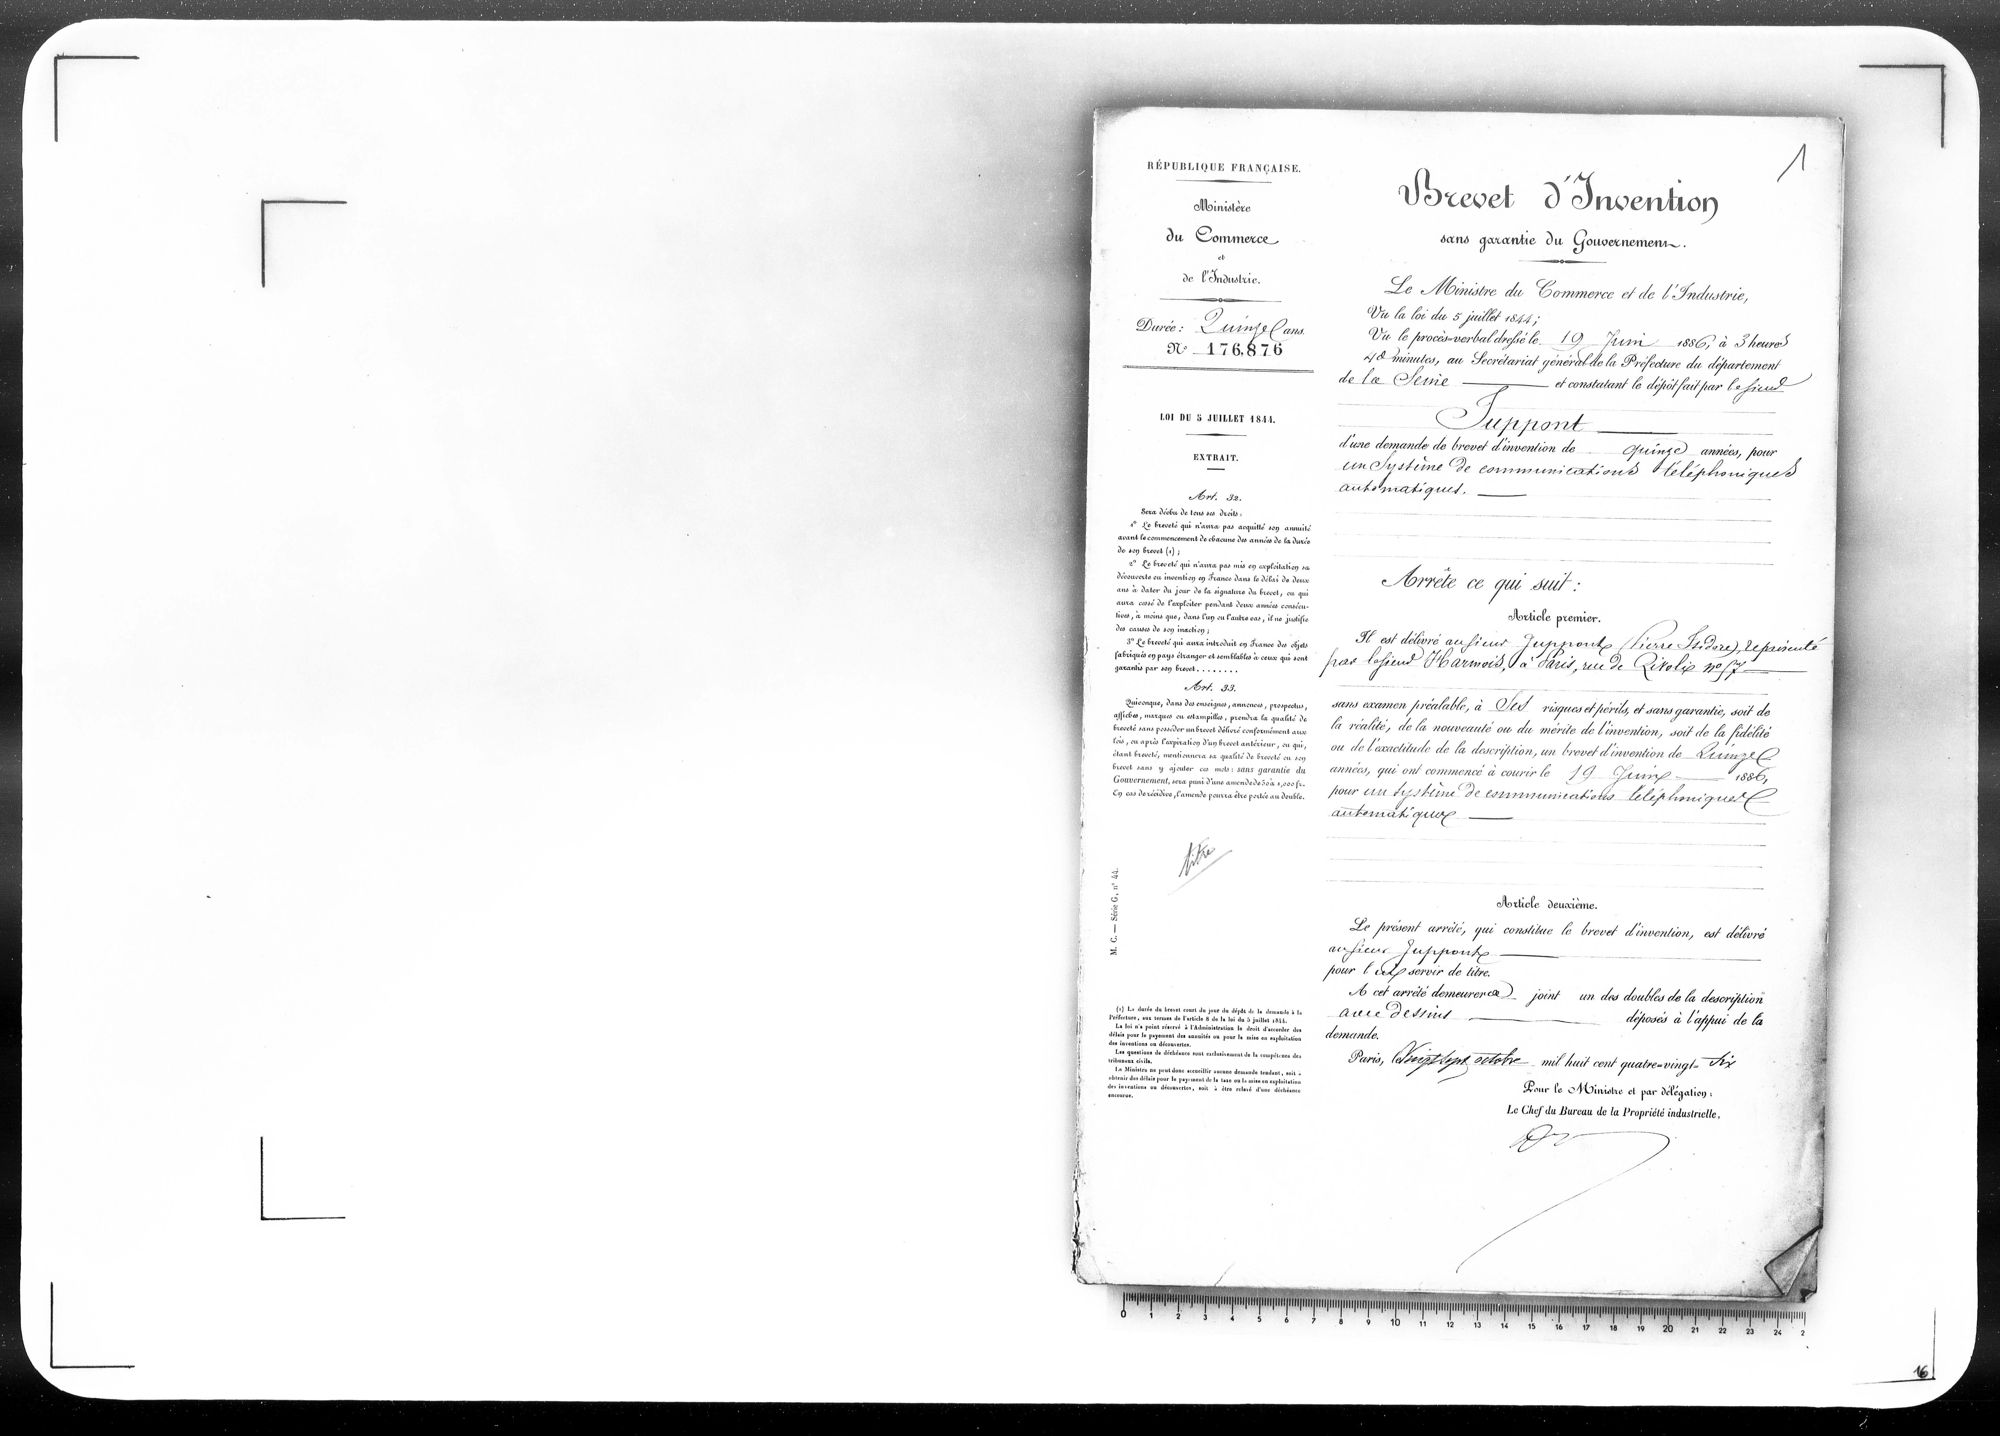 1
RÉPUBLIQUE FRANÇAISE.
Ministère
du Commerce
et
de l'Industrie.
Durée: Quinze ans.
N° 176,876
LOI DU 5 JUILLET 1844.
EXTRAIT.
Art. 32.
Sera déchu de tous ses droits:
1° Le breveté qui n'aura pas acquitté son annuité
avant le commencement de chacune des années de la durée
de son brevet (1);
2° Le breveté qui n'aura pas mis en exploitation sa
découverte ou invention en France dans le délai de deux
ans à dater du jour de la signature du brevet, ou qui
aura cessé de l'exploiter pendant deux années consécu-
tives, à moins que, dans l'un ou l'autre cas, il ne justifie
des causes de son inaction;
3° Le breveté qui aura introduit en France des objets
fabriqués en pays étranger et semblables à ceux qui sont
garantis par son brevet........
Art. 33.
Quiconque, dans des enseignes, annonces, prospectus,
affiches, marques ou estampilles, prendra la qualité de
breveté sans posséder un brevet délivré conformément aux
lois, ou après l'expiration d'un brevet antérieur, ou qui,
étant breveté, mentionnera sa qualité de breveté ou son
brevet sans y ajouter ces mots: sans garantie du
Gouvernement, sera puni d'une amende de 50 à 1,000 fr.
En cas de récidive, l'amende pourra être portée au double.
titre
M. C. — Série G, n° 44.
(1) La durée du brevet court du jour du dépôt de la demande à la
Préfecture, aux termes de l'article 8 de la loi du 5 juillet 1844.
La loi n'a point réservé à l'Administration le droit d'accorder des
délais pour le payement des annuités ou pour la mise en exploitation
des inventions ou découvertes.
Les questions de déchéance sont exclusivement de la compétence des
tribunaux civils.
Le Ministre ne peut donc accueillir aucune demande tendant, soit à
obtenir des délais pour le payement de la taxe ou la mise en exploitation
des inventions ou découvertes, soit à être relevé d'une déchéance
encourue.
Brevet d'Invention
sans garantie du Gouvernement.
Le Ministre du Commerce et de l'Industrie,
Vu la loi du 5 juillet 1844;
Vu le procès-verbal dressé le 19 Juin 1886, à 3 heures
48 minutes, au Secrétariat général de la Préfecture du département
de la Seine et constatant le dépôt fait par le sieur
Juppont
d'une demande de brevet d'invention de quinze années, pour
un système de communications téléphoniques
automatiques.
Arrête ce qui suit:
Article premier.
Il est délivré au sieur Juppont (Pierre Isidore), représenté
par le sieur Harmois, à Paris, rue de Rivoli n° 57
sans examen préalable, à ses risques et périls, et sans garantie, soit de
la réalité, de la nouveauté ou du mérite de l'invention, soit de la fidélité
ou de l'exactitude de la description, un brevet d'invention de Quinze
années, qui ont commencé à courir le 19 Juin 1886,
pour un système de communications téléphoniques
automatiques
Article deuxième.
Le présent arrêté, qui constitue le brevet d'invention, est délivré
au sieur Juppont
pour lui servir de titre.
A cet arrêté demeurera joint un des doubles de la description
avec dessins déposés à l'appui de la
demande.
Paris, le vingt sept octobre mil huit cent quatre-vingt-six
Pour le Ministre et par délégation:
Le Chef du Bureau de la Propriété industrielle,
0 1 2 3 4 5 6 7 8 9 10 11 12 13 14 15 16 17 18 19 20 21 22 23 24 2
16